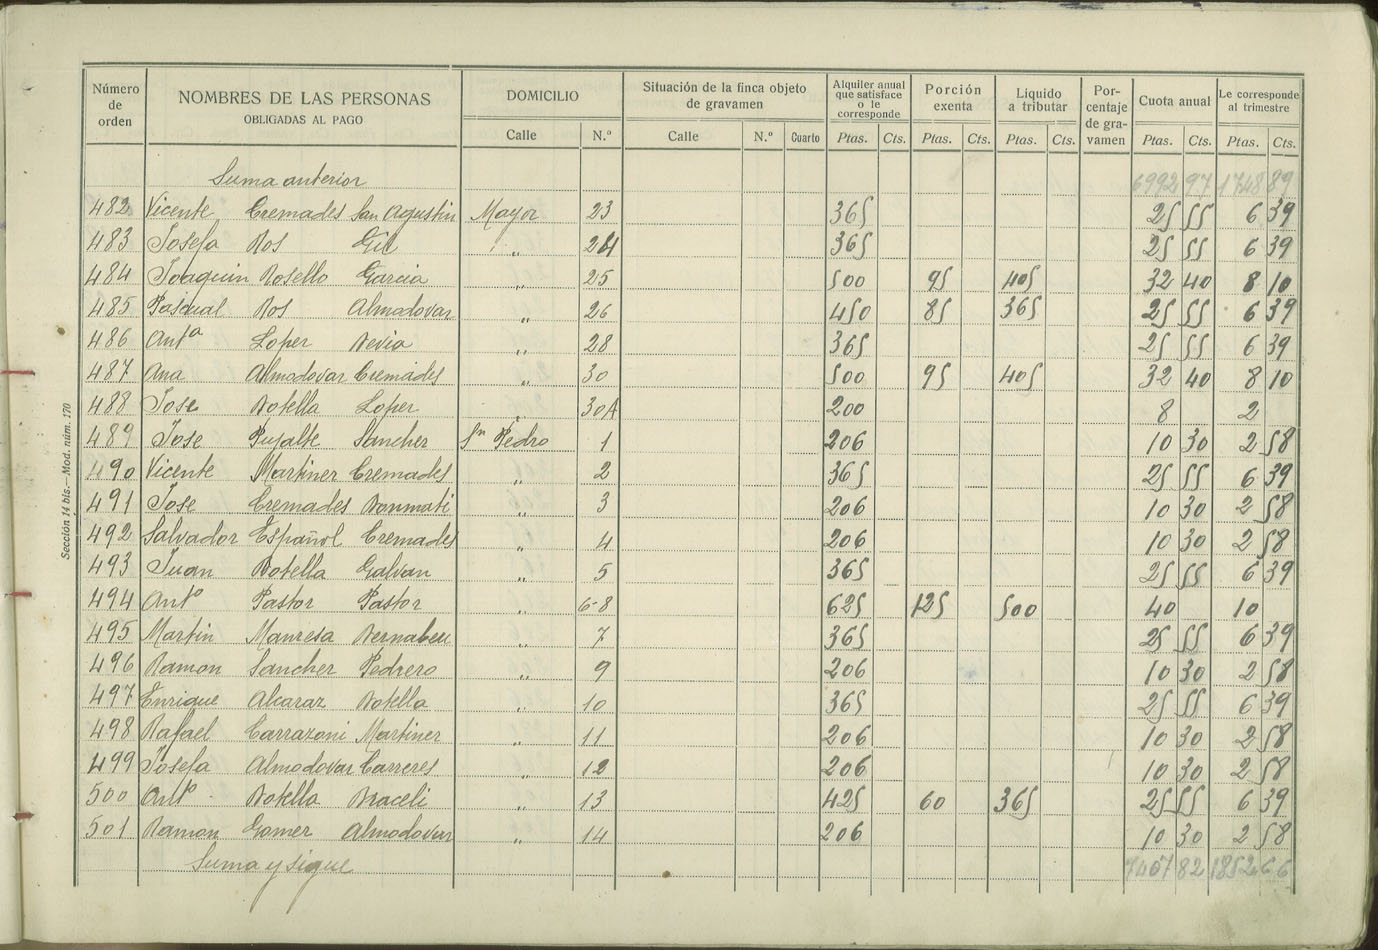 Número de orden NOMBRES DE LAS PERSONAS OBLIGADAS AL PAGO DOMICILIO Situación de la finca objeto de gravamen Alquiler anual que satisface o le corresponde Porción exenta Líquido a tributar Por-centaje de gra-vamen Cuota anual Le corresponde al trimestre
Calle N.º Calle N.º Cuarto Ptas. Cts. Ptas. Cts. Ptas. Cts. Ptas. Cts. Ptas. Cts.
Suma anterior 6992 97 1748 89
482 Vicente Cremades San Agustin Mayor 23 365 25 55 6 39
483 Josefa Ros Gil " 24 365 25 55 6 39
484 Joaquin Rosello Garcia " 25 500 95 405 32 40 8 10
485 Pascual Ros Almodovar " 26 450 85 365 25 55 6 39
486 Antª Lopez Devia " 28 365 25 55 6 39
487 Ana Almodovar Cremades " 30 500 95 405 32 40 8 10
488 Jose Botella Lopez " 30A 200 8 2
489 Jose Pujalte Sanchez Sn Pedro 1 206 10 30 2 58
490 Vicente Martinez Cremades " 2 365 25 55 6 39
491 Jose Cremades Bonmati " 3 206 10 30 2 58
492 Salvador Español Cremades " 4 206 10 30 2 58
493 Juan Botella Galvan " 5 365 25 55 6 39
494 Antº Pastor Pastor " 6-8 625 125 500 40 10
495 Martin Manresa Bernabeu " 7 365 25 55 6 39
496 Ramon Sanchez Pedrero " 9 206 10 30 2 58
497 Enrique Alcaraz Botella " 10 365 25 55 6 39
498 Rafael Carrazoni Martinez " 11 206 10 30 2 58
499 Josefa Almodovar Carreres " 12 206 10 30 2 58
500 Antº Botella Braceli " 13 425 60 365 25 55 6 39
501 Ramon Gomez Almodovar " 14 206 10 30 2 58
Suma y sigue 7407 82 1852 66
Sección 14 bis.—Mod. núm. 170